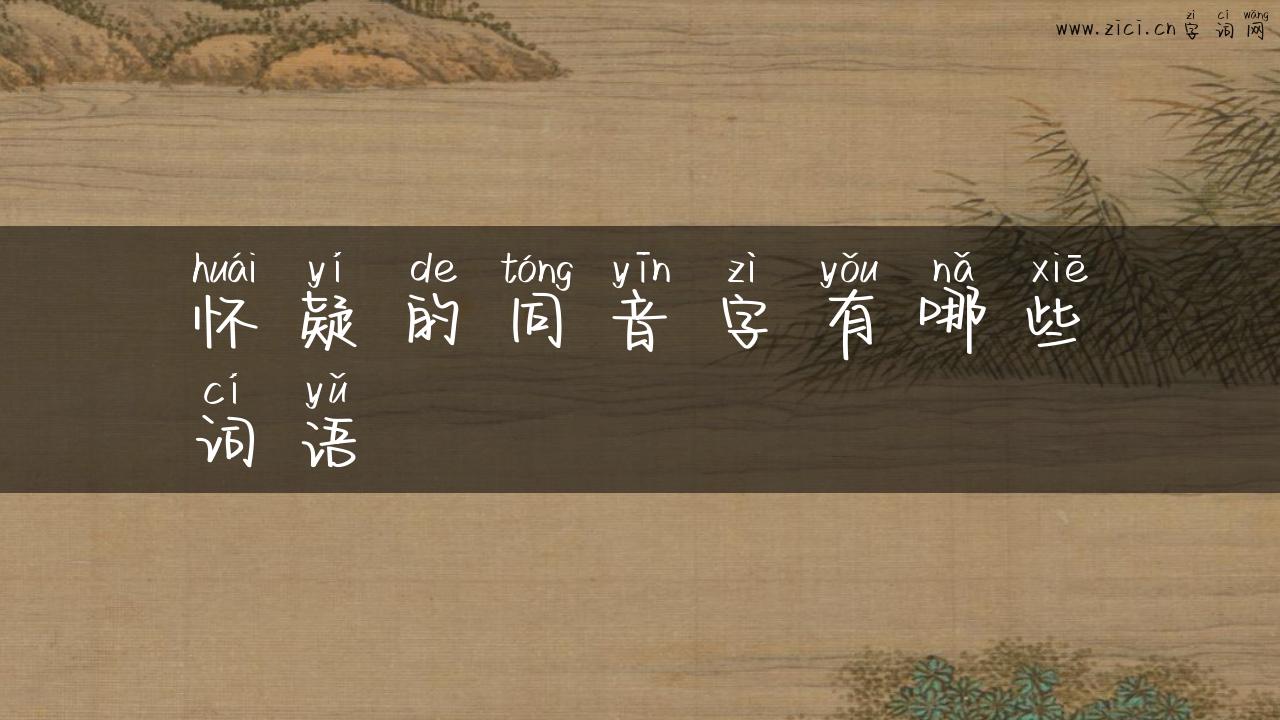 zì cí wǎng
www.zici.cn 字词网
huái yí de tóng yīn zì yǒu nǎ xiē
怀疑的同音字有哪些
cí yǔ
词语